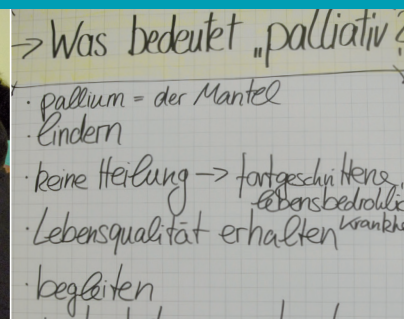 -> Was bedeutet „palliativ?
· pallium = der Mantel
· lindern
· keine Heilung -> fortgeschrittene,
lebensbedrohlic
· Lebensqualität erhalten Krankhe
· begleiten